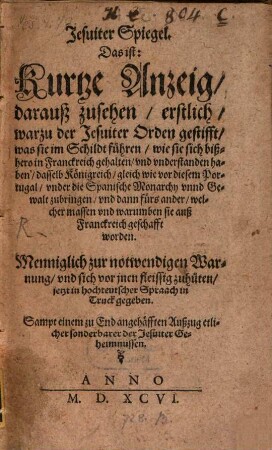 H. e. 804 C
Jesuiter Spiegel.
Das ist:
Kurtze Anzeig/
darauß zusehen / erstlich /
warzu der Jesuiter Orden gestifft/
was sie im Schildt führen / wie sie sich biß-
hero in Franckreich gehalten/vnd vnderstanden ha-
ben/ dasselb Königreich / gleich wie vor diesem Por-
tugal / vnder die Spanische Monarchy vnnd Ge-
walt zubringen / vnd dann fürs ander/ wel-
cher massen vnd warumben sie auß
Franckreich geschafft
worden.
Menniglich zur notwendigen War-
nung / vnd sich vor jnen fleissig zuhüten/
jetzt in hochteutscher Spraach in
Truck gegeben.
Sampt einem zu End angehäfften Außzug etli-
cher sonderbarer der Jesuiter Ge-
heimnussen.
A N N O
M. D. XCVI.